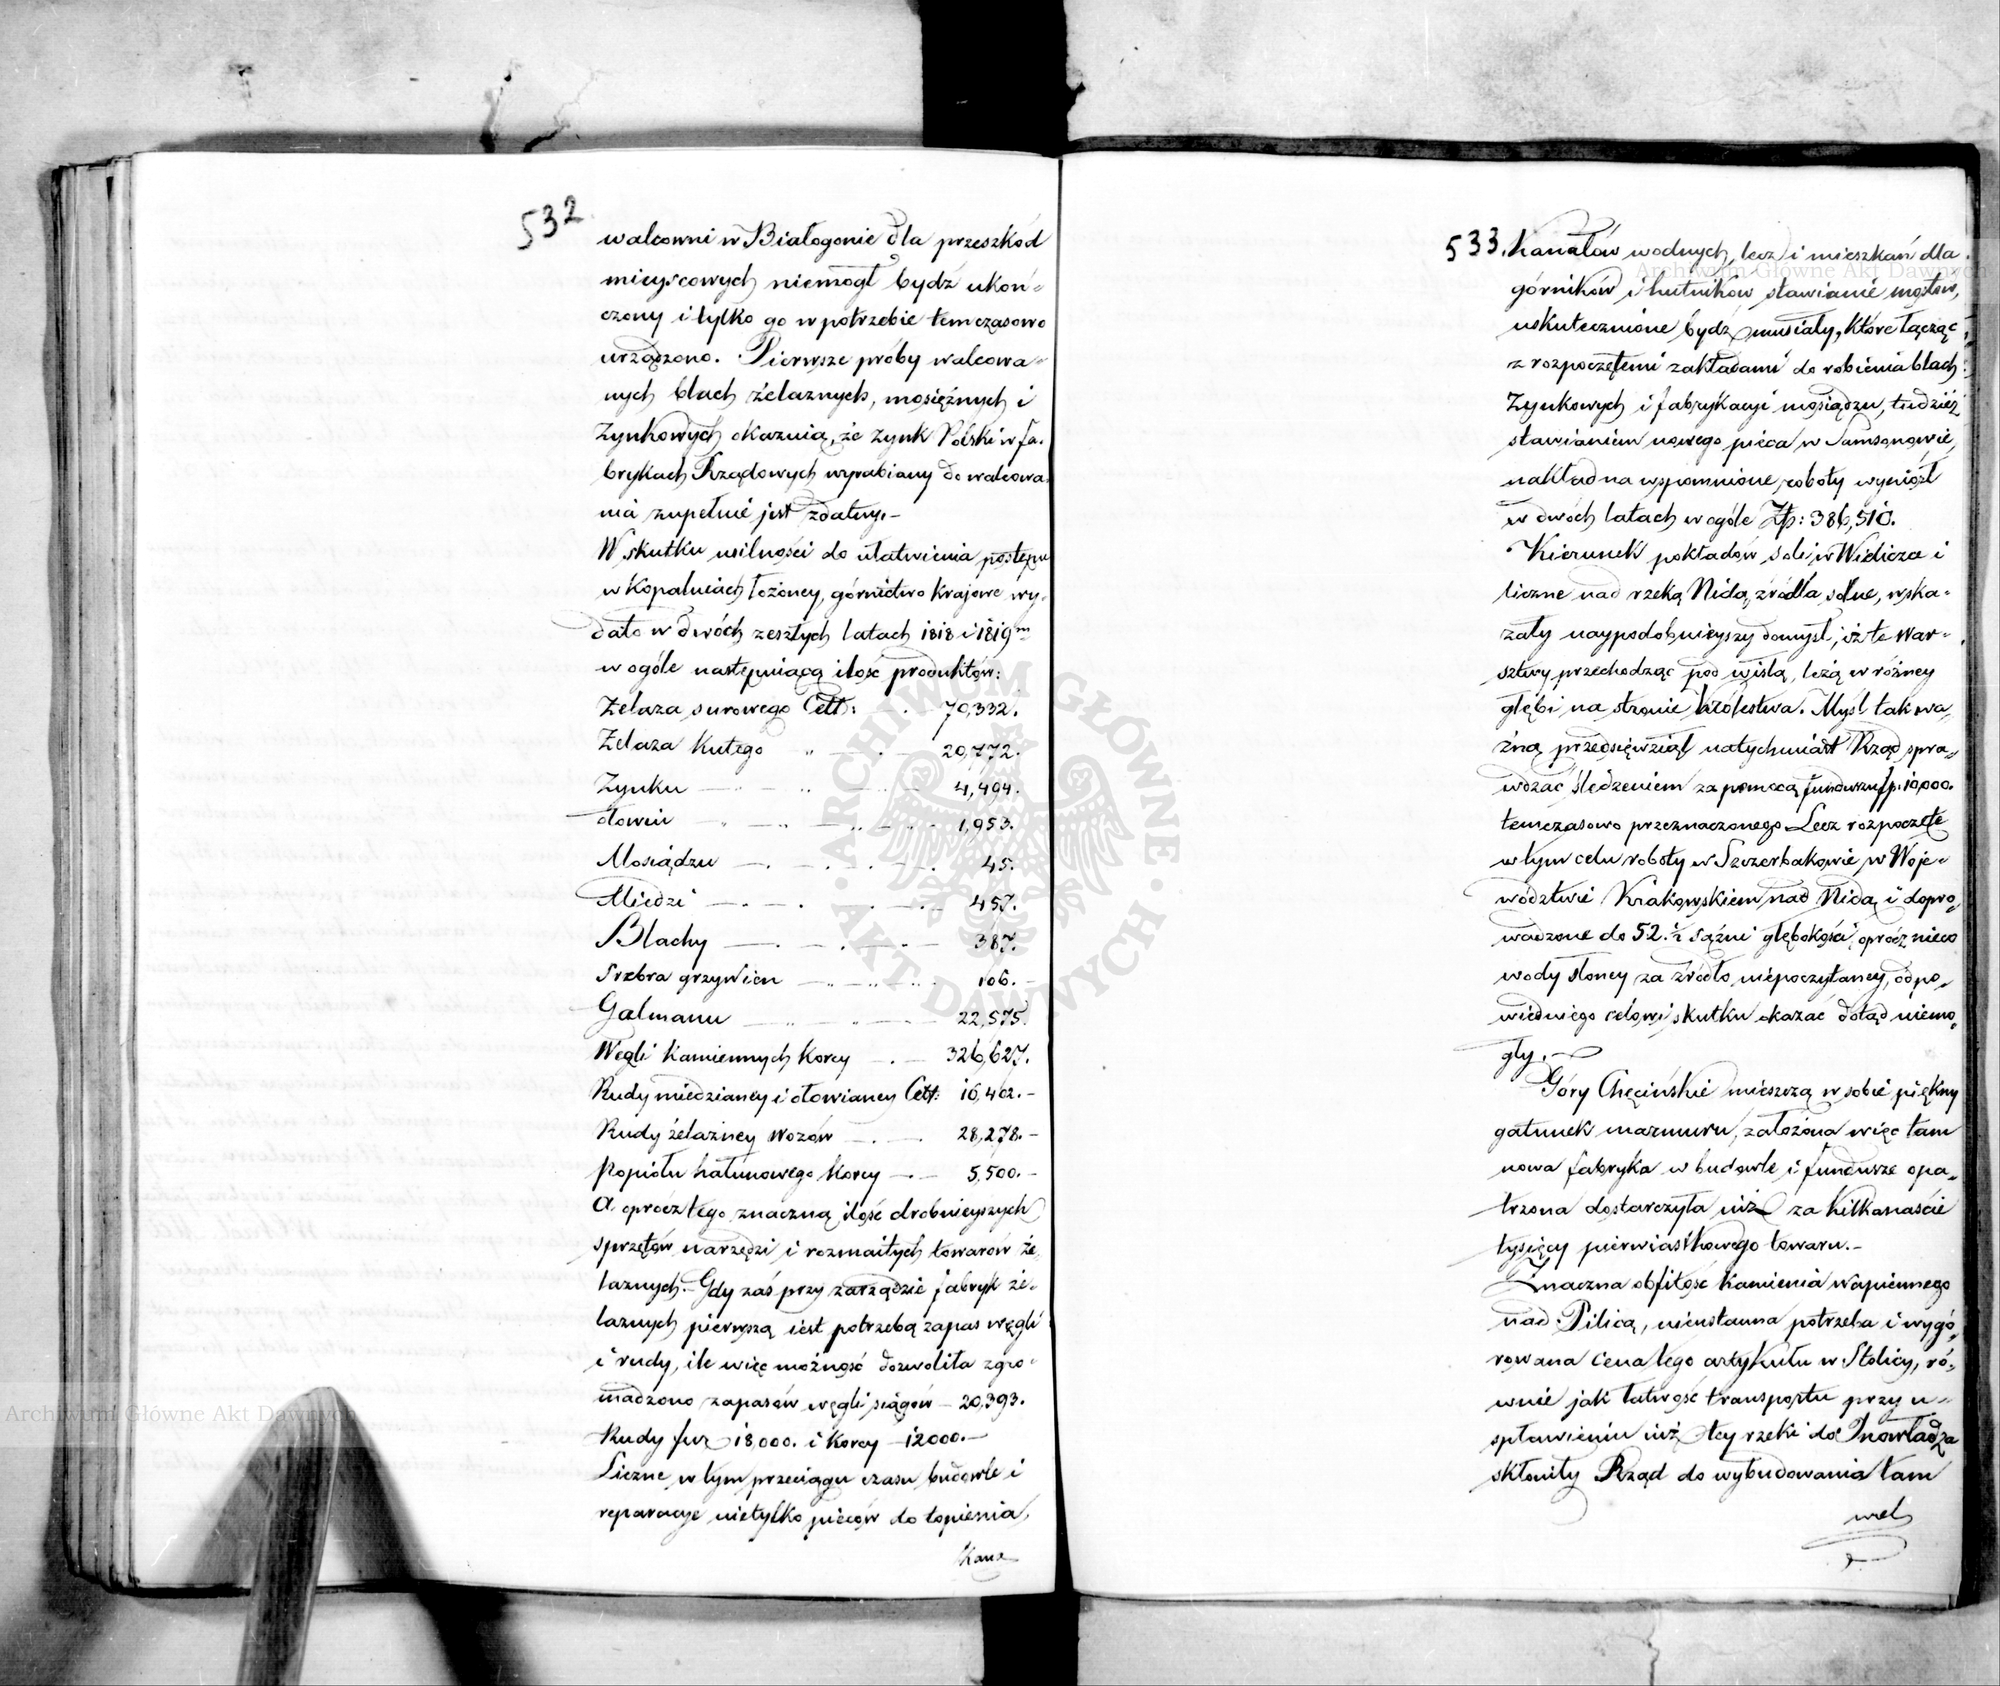 532
walcowni w Białogonie dla przeszkód
mieyscowych niemógł bydź ukoń-
czony i tylko go w potrzebie temczasowo
urządzono. Pierwsze próby walcowa-
nych blach żelaznych, mosiężnych i
Zynkowych okazuią, że zynk Polski w fa-
brykach Rządowych wyrabiany do walcowa-
nia zupełnie jest zdatny.-
W skutku usilności do ułatwienia postępu
w kopalniach łożoney, górnictwo krajowe wy-
dało w dwóch zeszłych latach 1818 i 1819m
w ogóle następuiącą ilość produktów:
Żelaza surowego Cett: 70,332.
Żelaza kutego " 20,772.
Zynku 4,494.
ołowiu 1,953.
Mosiądzu 45.
Miedzi 457.
Blachy 387.
Srebra grzywien 106.
Galmanu 22,575.
Węgli kamiennych korcy 326,627.
Rudy miedzianey i ołowianey Cett: 16,402.-
Rudy żelazney wozów 28,278.-
Popiołu hałunowego korcy 5,500.-
A oprócz tego znaczną ilość drobnieyszych
sprzętów narzędzi i rozmaitych towarów że-
laznych.- Gdy zaś przy zarządzie fabryk że-
laznych pierwszą iest potrzebą zapas węgli
i rudy, ile więc możność dozwoliła zgro-
madzono zapasów węgli siągów - 20,393.
Rudy fur 18,000. i korcy - 12000.-
Liczne w tym przeciągu czasu budowle i
reparacye nietylko pieców do topienia,
Kana
533. Kanałów wodnych, lecz i mieszkań dla
górników i hutników stawianie mostów,
uskutecznione bydź musiały, które łącząc
z rozpoczętemi zakładami do robienia blach
Zynkowych i fabrykacyi mosiądzu, tudzież
stawianiem nowego pieca w Samsonowie,
nakład na wspomnione roboty wyniósł
w dwóch latach w ogóle Zp: 386,510.
Kierunek pokładów soli w Wieliczce i
liczne nad rzeką Nidą źródła solne, wska-
zały naypodobnieyszy domysł, iż te war-
sztwy przechodząc pod wisłą, leżą w różney
głębi na stronie Królestwa. Myśl tak wa-
żną przedsięwziął natychmiast Rząd spra-
wdzać śledzeniem za pomocą funduszu fp. 10,000.
temczasowo przeznaczonego. Lecz rozpoczęte
w tym celu roboty w Szczerbakowie w Woje-
wództwie Krakowskiem nad Nidą i dopro-
wadzone do 52. ½ sążni głębokości, oprócz nieco
wody słoney za źródło niepoczytaney, odpo-
wiedniego celowi skutku okazać dotąd niemo-
gły.-
Góry Chęcińskie mieszczą w sobie piękny
gatunek marmuru, założona więc tam
nowa fabryka w budowle i fundusze opa-
trzona dostarczyła iuż za kilkanaście
tysięcy pierwiastkowego towaru.-
Znaczna obfitość kamienia wapiennego
nad Pilicą, nieustanna potrzeba i wygó-
rowana cena tego artykułu w Stolicy, ró-
wnie jak łatwość transportu przy u-
spławieniu iuż tey rzeki do Inowładza
skłoniły Rząd do wybudowania tam
wiel
Archiwum Główne Akt Dawnych
Archiwum Główne Akt Dawnych
ARCHIWUM GŁÓWNE AKT DAWNYCH